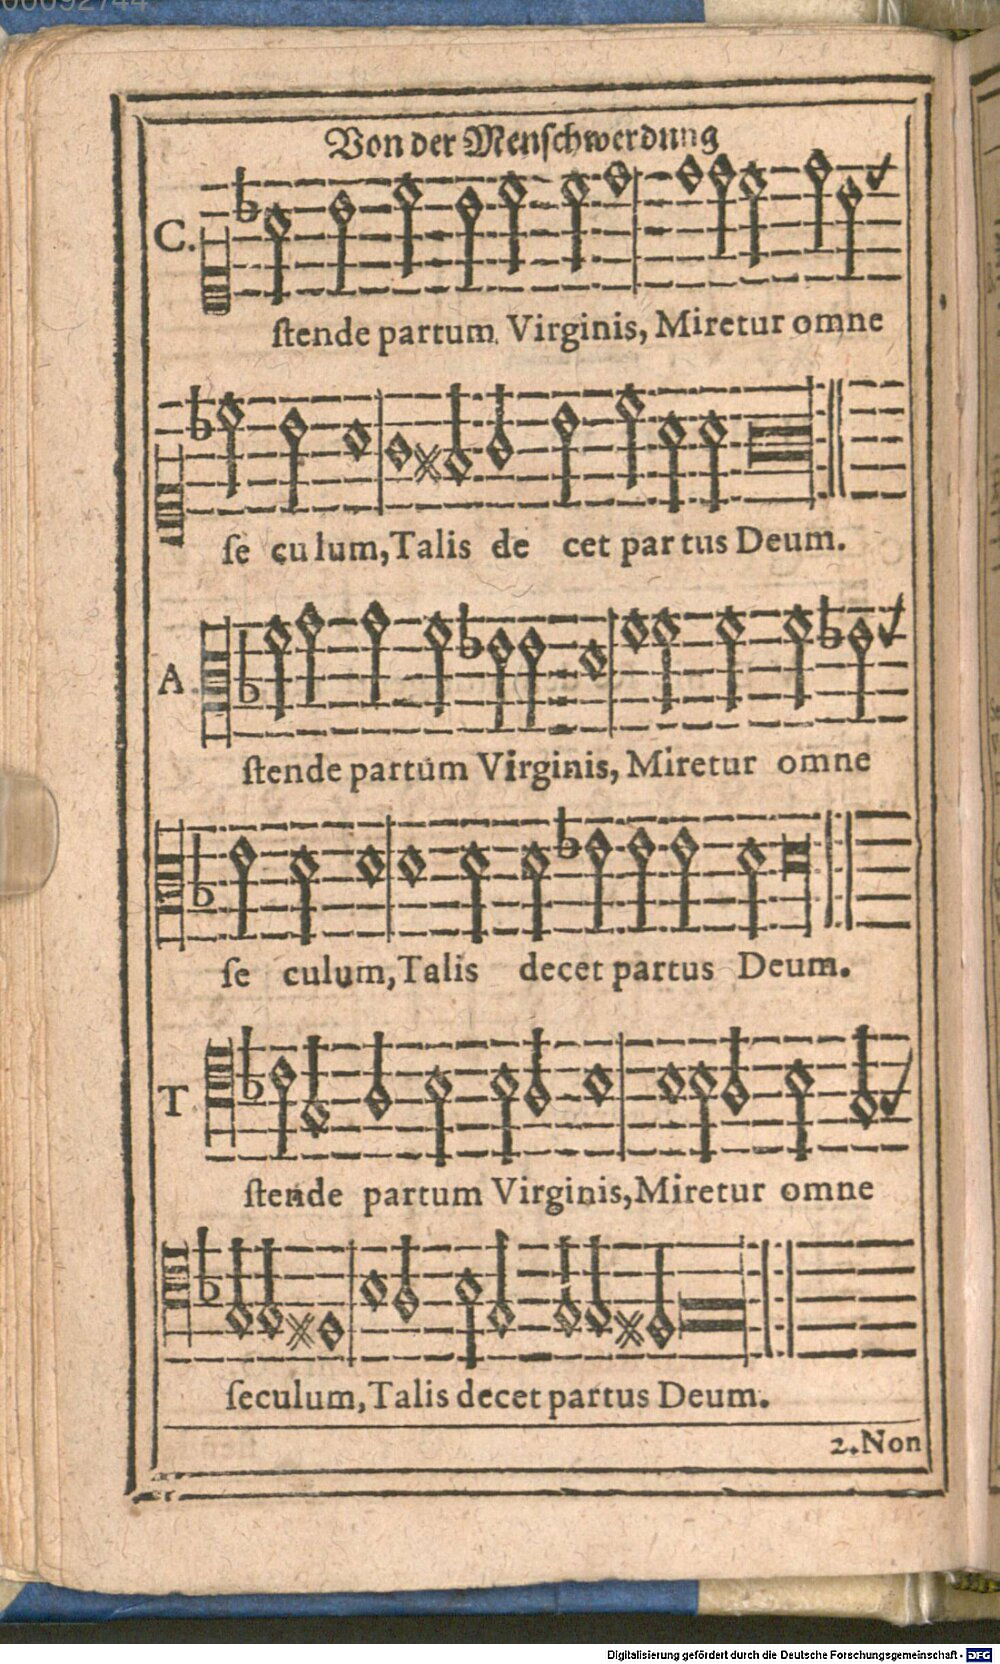 00092744
Von der Menschwerdung
C.
ſtende partum Virginis, Miretur omne
ſe culum, Talis de cet par tus Deum.
A
ſtende partum Virginis, Miretur omne
ſe culum, Talis decet partus Deum.
T
ſtende partum Virginis, Miretur omne
ſeculum, Talis decet partus Deum.
2. Non
Digitalisierung gefördert durch die Deutsche Forschungsgemeinschaft - DFG